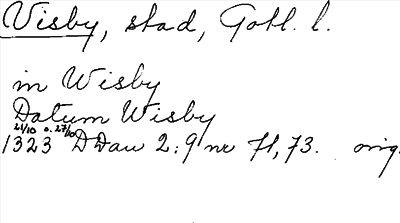 Visby, stad, Gotl. l.
in Wisby
Datum Wisby
24/10 o. 27/10
1323 DDan 2:9 nr 71, 73. orig.